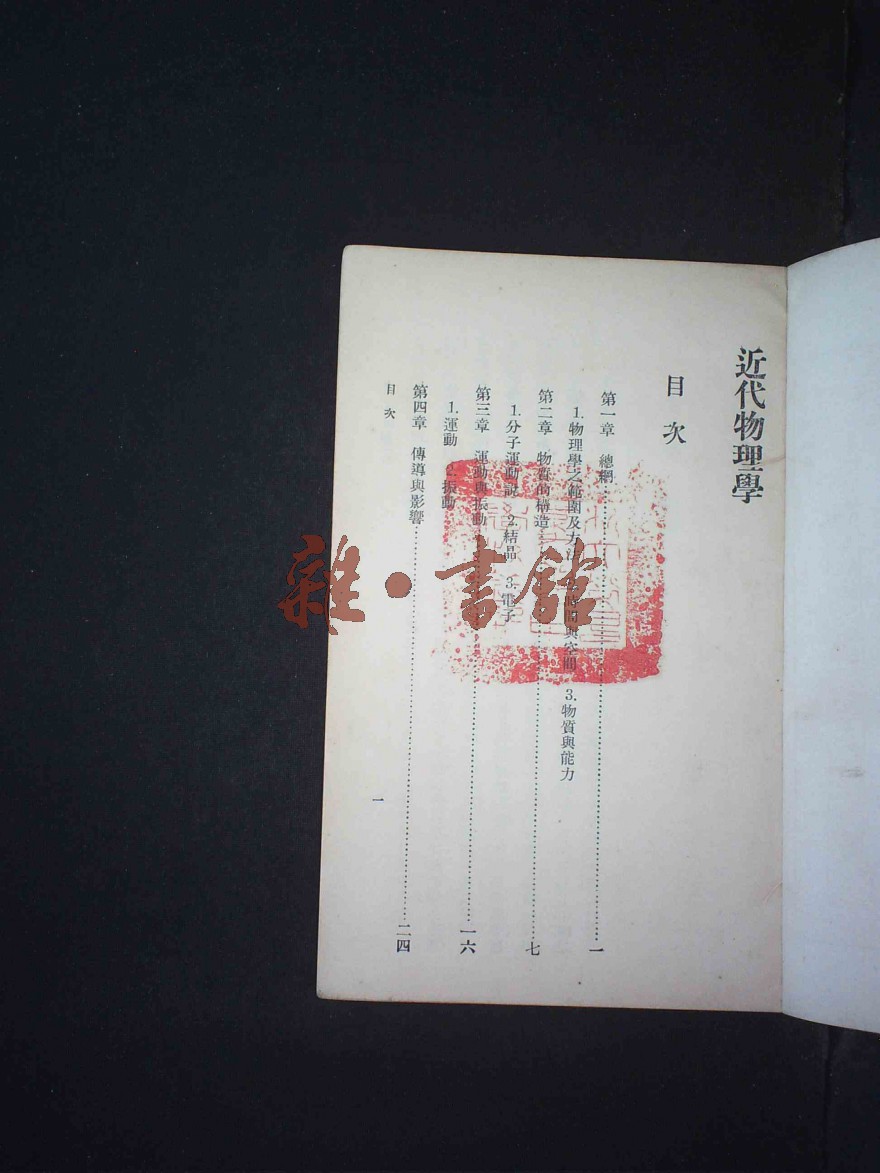 近代物理學
目次
第一章 總綱……一
1.物理學之範圍及方法 2.時間與空間 3.物質與能力
第二章 物質的構造……七
1.分子運動說 2.結晶 3.電子
第三章 運動與振動……一六
1.運動 2.振動
第四章 傳導與影響……二四
目次
一
雜·書館